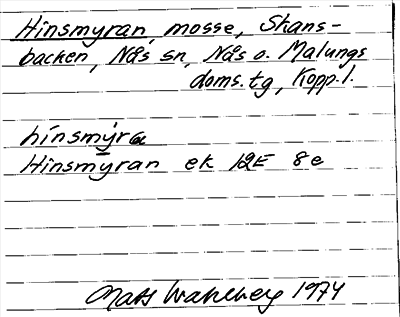 Hinsmyran, mosse, Skans-
backen, Nås sn, Nås o. Malungs
doms.tg, Kopp. l.
hinsmýra
Hinsmyran ek 12E 8e
Mats Wahlberg 1974